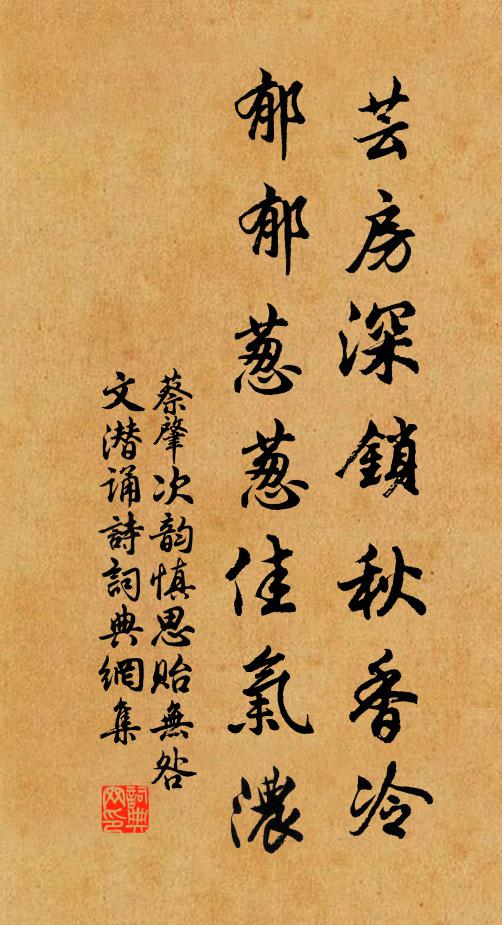 芸房深鎖秋香冷
郁郁葱葱佳氣濃
蔡肇次韵慎思貽無咎
文潜诵詩詞典網集
詞典
网印